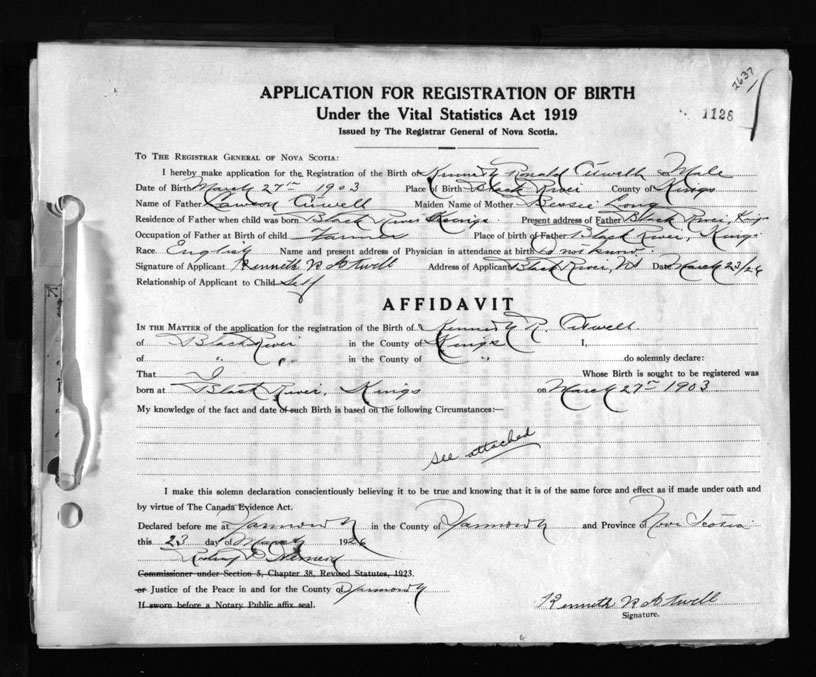 2637
APPLICATION FOR REGISTRATION OF BIRTH
Under the Vital Statistics Act 1919
1128
Issued by The Registrar General of Nova Scotia.
TO THE REGISTRAR GENERAL OF NOVA SCOTIA:
I hereby make application for the Registration of the Birth of Kenneth Ronald Atwell Sex Male
Date of Birth March 27th 1903 Place of Birth Black River County of Kings
Name of Father Lawson Atwell Maiden Name of Mother Bessie Long
Residence of Father when child was born Black River Kings Present address of Father Black River, Kings
Occupation of Father at Birth of child Farmer Place of birth of Father Black River, Kings
Race English Name and present address of Physician in attendance at birth do not know
Signature of Applicant Kenneth R Atwell Address of Applicant Black River, NS Date March 23/26
Relationship of Applicant to Child Self
AFFIDAVIT
IN THE MATTER of the application for the registration of the Birth of Kenneth R. Atwell
of Black River in the County of Kings I,
of " " in the County of " do solemnly declare:
That I Whose Birth is sought to be registered was
born at Black River, Kings on March 27th 1903
My knowledge of the fact and date of such Birth is based on the following Circumstances:—
see attached
I make this solemn declaration conscientiously believing it to be true and knowing that it is of the same force and effect as if made under oath and
by virtue of The Canada Evidence Act.
Declared before me at Yarmouth in the County of Yarmouth and Province of Nova Scotia
this 23 day of March 1926
Commissioner under Section 5, Chapter 38, Revised Statutes, 1923.
or Justice of the Peace in and for the County of Yarmouth
If sworn before a Notary Public affix seal.
Kenneth R Atwell
Signature.